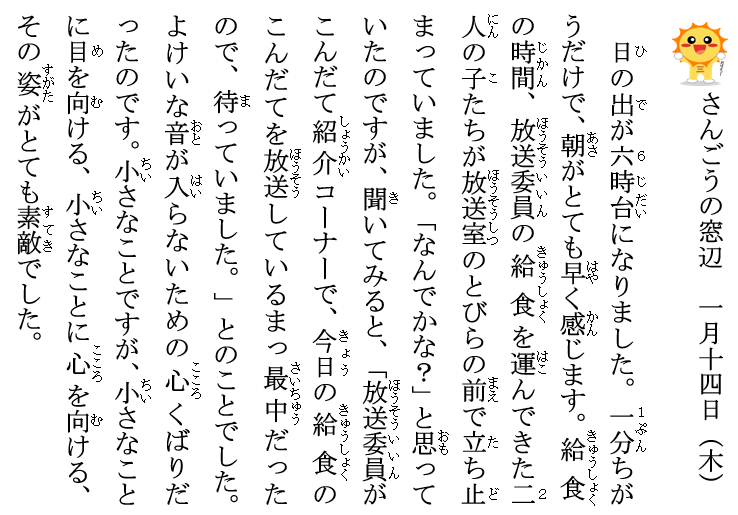 さんごうの窓辺　一月十四日（木）
日の出が六時台になりました。一分ちが
うだけで、朝がとても早く感じます。給食
の時間、放送委員の給食を運んできた二
人の子たちが放送室のとびらの前で立ち止
まっていました。「なんでかな？」と思って
いたのですが、聞いてみると、「放送委員が
こんだて紹介コーナーで、今日の給食の
こんだてを放送しているまっ最中だった
ので、待っていました。」とのことでした。
よけいな音が入らないための心くばりだ
ったのです。小さなことですが、小さなこと
に目を向ける、小さなことに心を向ける、
その姿がとても素敵でした。